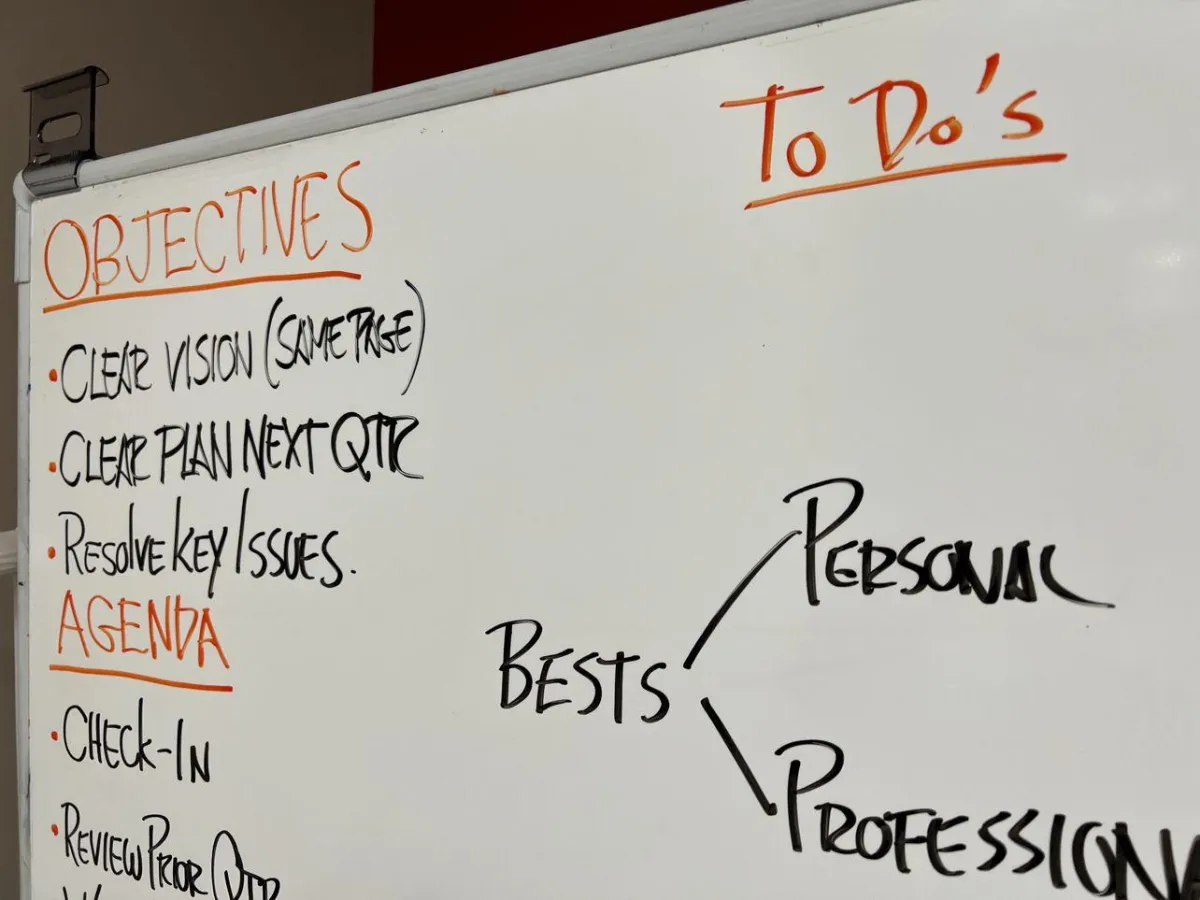 OBJECTIVES
• CLEAR VISION (SAME PAGE)
• CLEAR PLAN NEXT QTR
• RESOLVE KEY ISSUES.
AGENDA
• CHECK-IN
• REVIEW PRIOR QTR
To Do's
BESTS
PERSONAL
PROFESSION